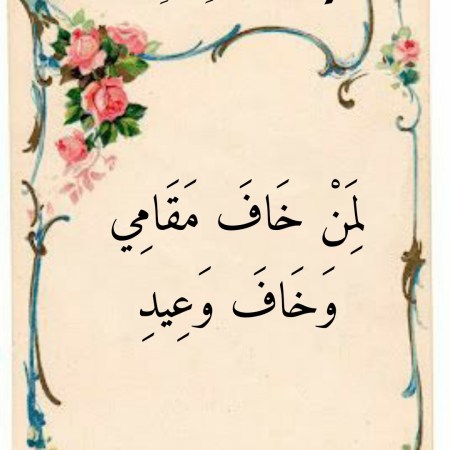 لِمَنْ خَافَ مَقَامِي
وَخَافَ وَعِيدِ